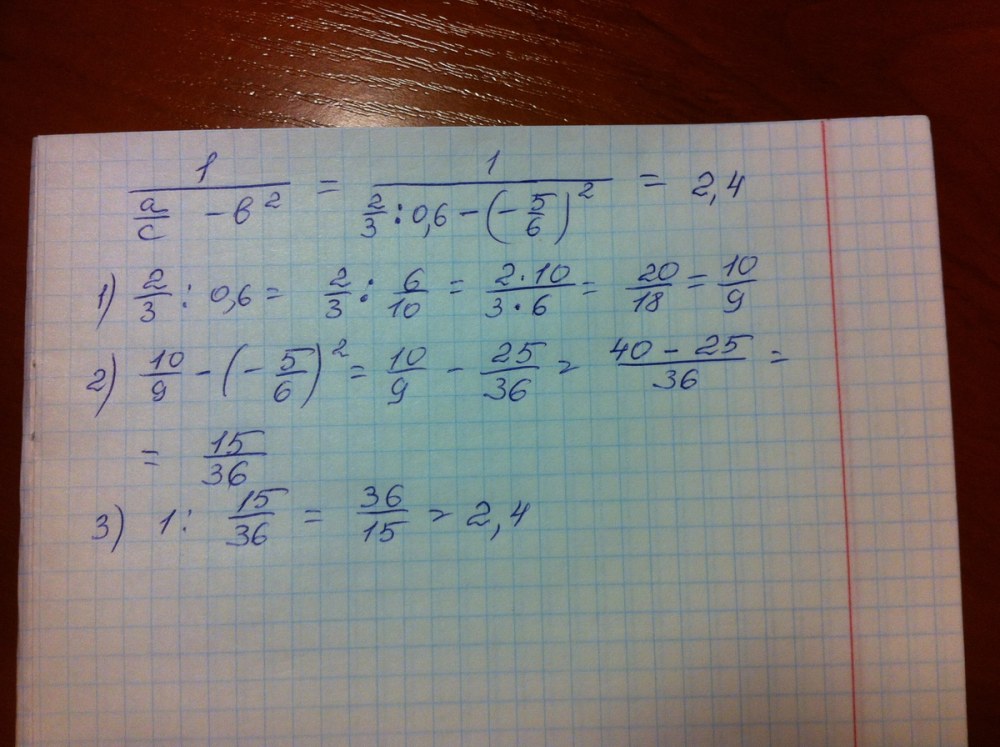 1/(a/c - b²) = 1/(2/3 : 0,6 - (-5/6)²) = 2,4
1) 2/3 : 0,6 = 2/3 : 6/10 = 2·10/3·6 = 20/18 = 10/9
2) 10/9 - (-5/6)² = 10/9 - 25/36 = 40 - 25/36 =
= 15/36
3) 1 : 15/36 = 36/15 = 2,4